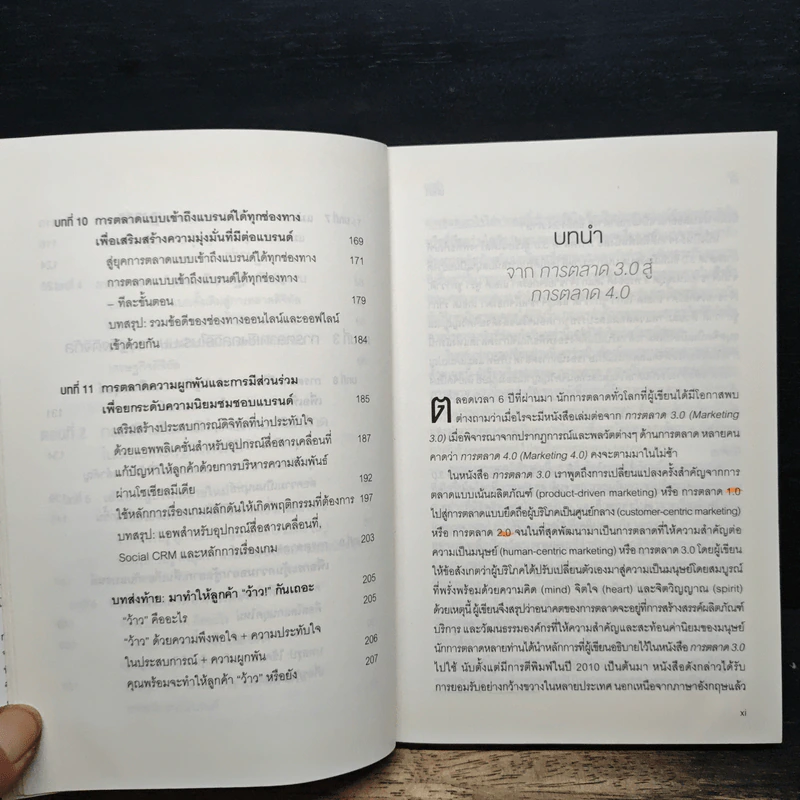 บทที่ 10 การตลาดแบบเข้าถึงแบรนด์ได้ทุกช่องทาง
เพื่อเสริมสร้างความมุ่งมั่นที่มีต่อแบรนด์ 169
สู่ยุคการตลาดแบบเข้าถึงแบรนด์ได้ทุกช่องทาง 171
การตลาดแบบเข้าถึงแบรนด์ได้ทุกช่องทาง
– ทีละขั้นตอน 179
บทสรุป: รวมข้อดีของช่องทางออนไลน์และออฟไลน์
เข้าด้วยกัน 184
บทที่ 11 การตลาดความผูกพันและการมีส่วนร่วม
เพื่อยกระดับความนิยมชมชอบแบรนด์ 185
เสริมสร้างประสบการณ์ดิจิทัลที่น่าประทับใจ
ด้วยแอพพลิเคชั่นสำหรับอุปกรณ์สื่อสารเคลื่อนที่ 187
แก้ปัญหาให้ลูกค้าด้วยการบริหารความสัมพันธ์
ผ่านโซเชียลมีเดีย 192
ใช้หลักการเรื่องเกมผลักดันให้เกิดพฤติกรรมที่ต้องการ 197
บทสรุป: แอพสำหรับอุปกรณ์สื่อสารเคลื่อนที่,
Social CRM และหลักการเรื่องเกม 203
บทส่งท้าย: มาทำให้ลูกค้า "ว้าว!" กันเถอะ 205
"ว้าว" คืออะไร 205
"ว้าว" ด้วยความพึงพอใจ + ความประทับใจ
ในประสบการณ์ + ความผูกพัน 206
คุณพร้อมจะทำให้ลูกค้า "ว้าว" หรือยัง 207
บทนำ
จาก การตลาด 3.0 สู่
การตลาด 4.0
ตลอดเวลา 6 ปีที่ผ่านมา นักการตลาดทั่วโลกที่ผู้เขียนได้มีโอกาสพบ
ต่างถามว่าเมื่อไรจะมีหนังสือเล่มต่อจาก การตลาด 3.0 (Marketing
3.0) เมื่อพิจารณาจากปรากฏการณ์และพลวัตต่างๆ ด้านการตลาด หลายคน
คาดว่า การตลาด 4.0 (Marketing 4.0) คงจะตามมาในไม่ช้า
ในหนังสือ การตลาด 3.0 เราพูดถึงการเปลี่ยนแปลงครั้งสำคัญจากการ
ตลาดแบบเน้นผลิตภัณฑ์ (product-driven marketing) หรือ การตลาด 1.0
ไปสู่การตลาดแบบยึดถือผู้บริโภคเป็นศูนย์กลาง (customer-centric marketing)
หรือ การตลาด 2.0 จนในที่สุดพัฒนามาเป็นการตลาดที่ให้ความสำคัญต่อ
ความเป็นมนุษย์ (human-centric marketing) หรือ การตลาด 3.0 โดยผู้เขียน
ให้ข้อสังเกตว่าผู้บริโภคได้ปรับเปลี่ยนตัวเองมาสู่ความเป็นมนุษย์โดยสมบูรณ์
ที่พรั่งพร้อมด้วยความคิด (mind) จิตใจ (heart) และจิตวิญญาณ (spirit)
ด้วยเหตุนี้ ผู้เขียนจึงสรุปว่าอนาคตของการตลาดจะอยู่ที่การสร้างสรรค์ผลิตภัณฑ์
บริการ และวัฒนธรรมองค์กรที่ให้ความสำคัญและสะท้อนค่านิยมของมนุษย์
นักการตลาดหลายท่านได้นำหลักการที่ผู้เขียนอธิบายไว้ในหนังสือ การตลาด 3.0
ไปใช้ นับตั้งแต่มีการตีพิมพ์ในปี 2010 เป็นต้นมา หนังสือดังกล่าวได้รับ
การยอมรับอย่างกว้างขวางในหลายประเทศ นอกเหนือจากภาษาอังกฤษแล้ว
xi